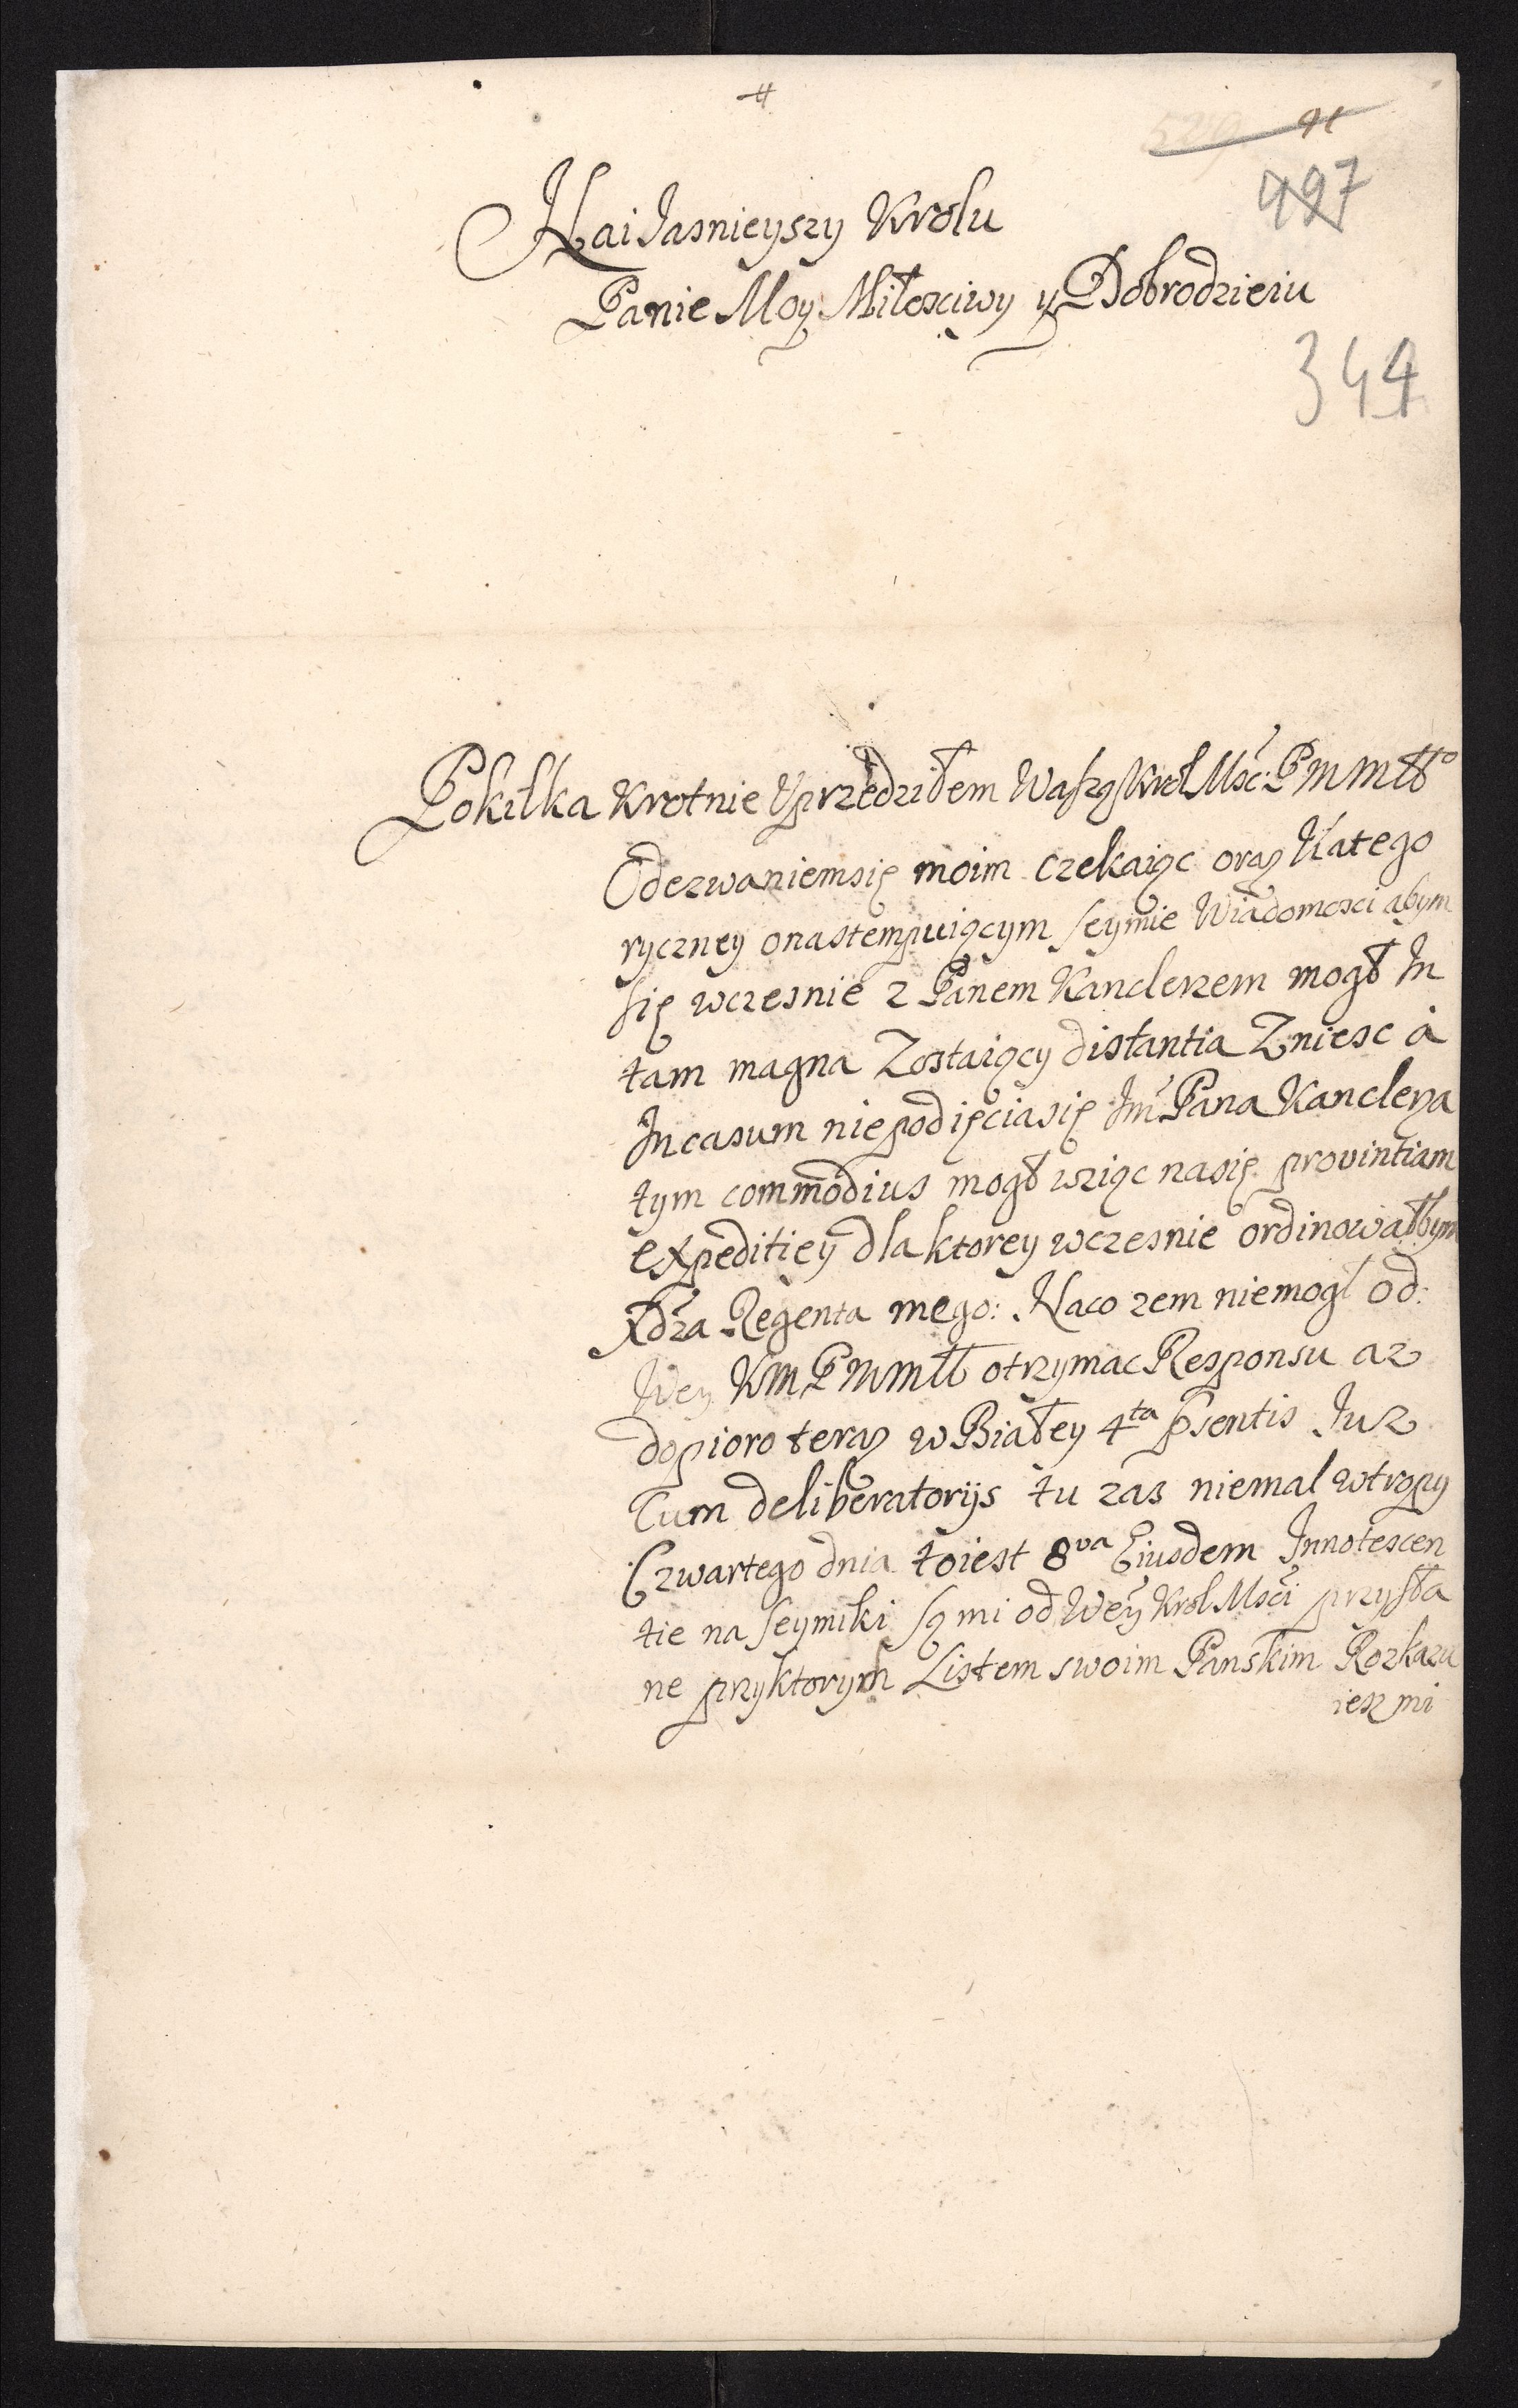 #
91
497
Nai Jasnieyszy Krolu
Panie Moy Miłosciwy y Dobrodzieiu
344
Pokilka Krotnie Vprzedziłem Waszą Krol Mść: P M Młł
Odezwaniemsię moim czekaiąc oraz Katego
ryczney onastempuiącym Seymie Wiadomosci abym
się wczesnie z Panem Kanclerzem mogł In
tam magna Zostaiący distantia Zniesc a
Incasum niepodięciasię Jm̃ Pana Kanclerza
tym commodius mogł wziąc nasię provintiam
expeditiey dla ktorey wczesnie ordinowałbym
Xdza Regenta mego: Naco zem niemogł od:
Wey KM P M Młł otrzymac Responsu az
dopioro teraz w Białey 4ta psentis Juz
Cum deliberatorijs tu zas niemal wtropy
Czwartego dnia toiest 8va Eiusdem Innotescen
tie na Seymiki są mi od Wey Krol Mści przysła
ne przyktorych Listem swoim Panskim Rozkazu
iesz mi